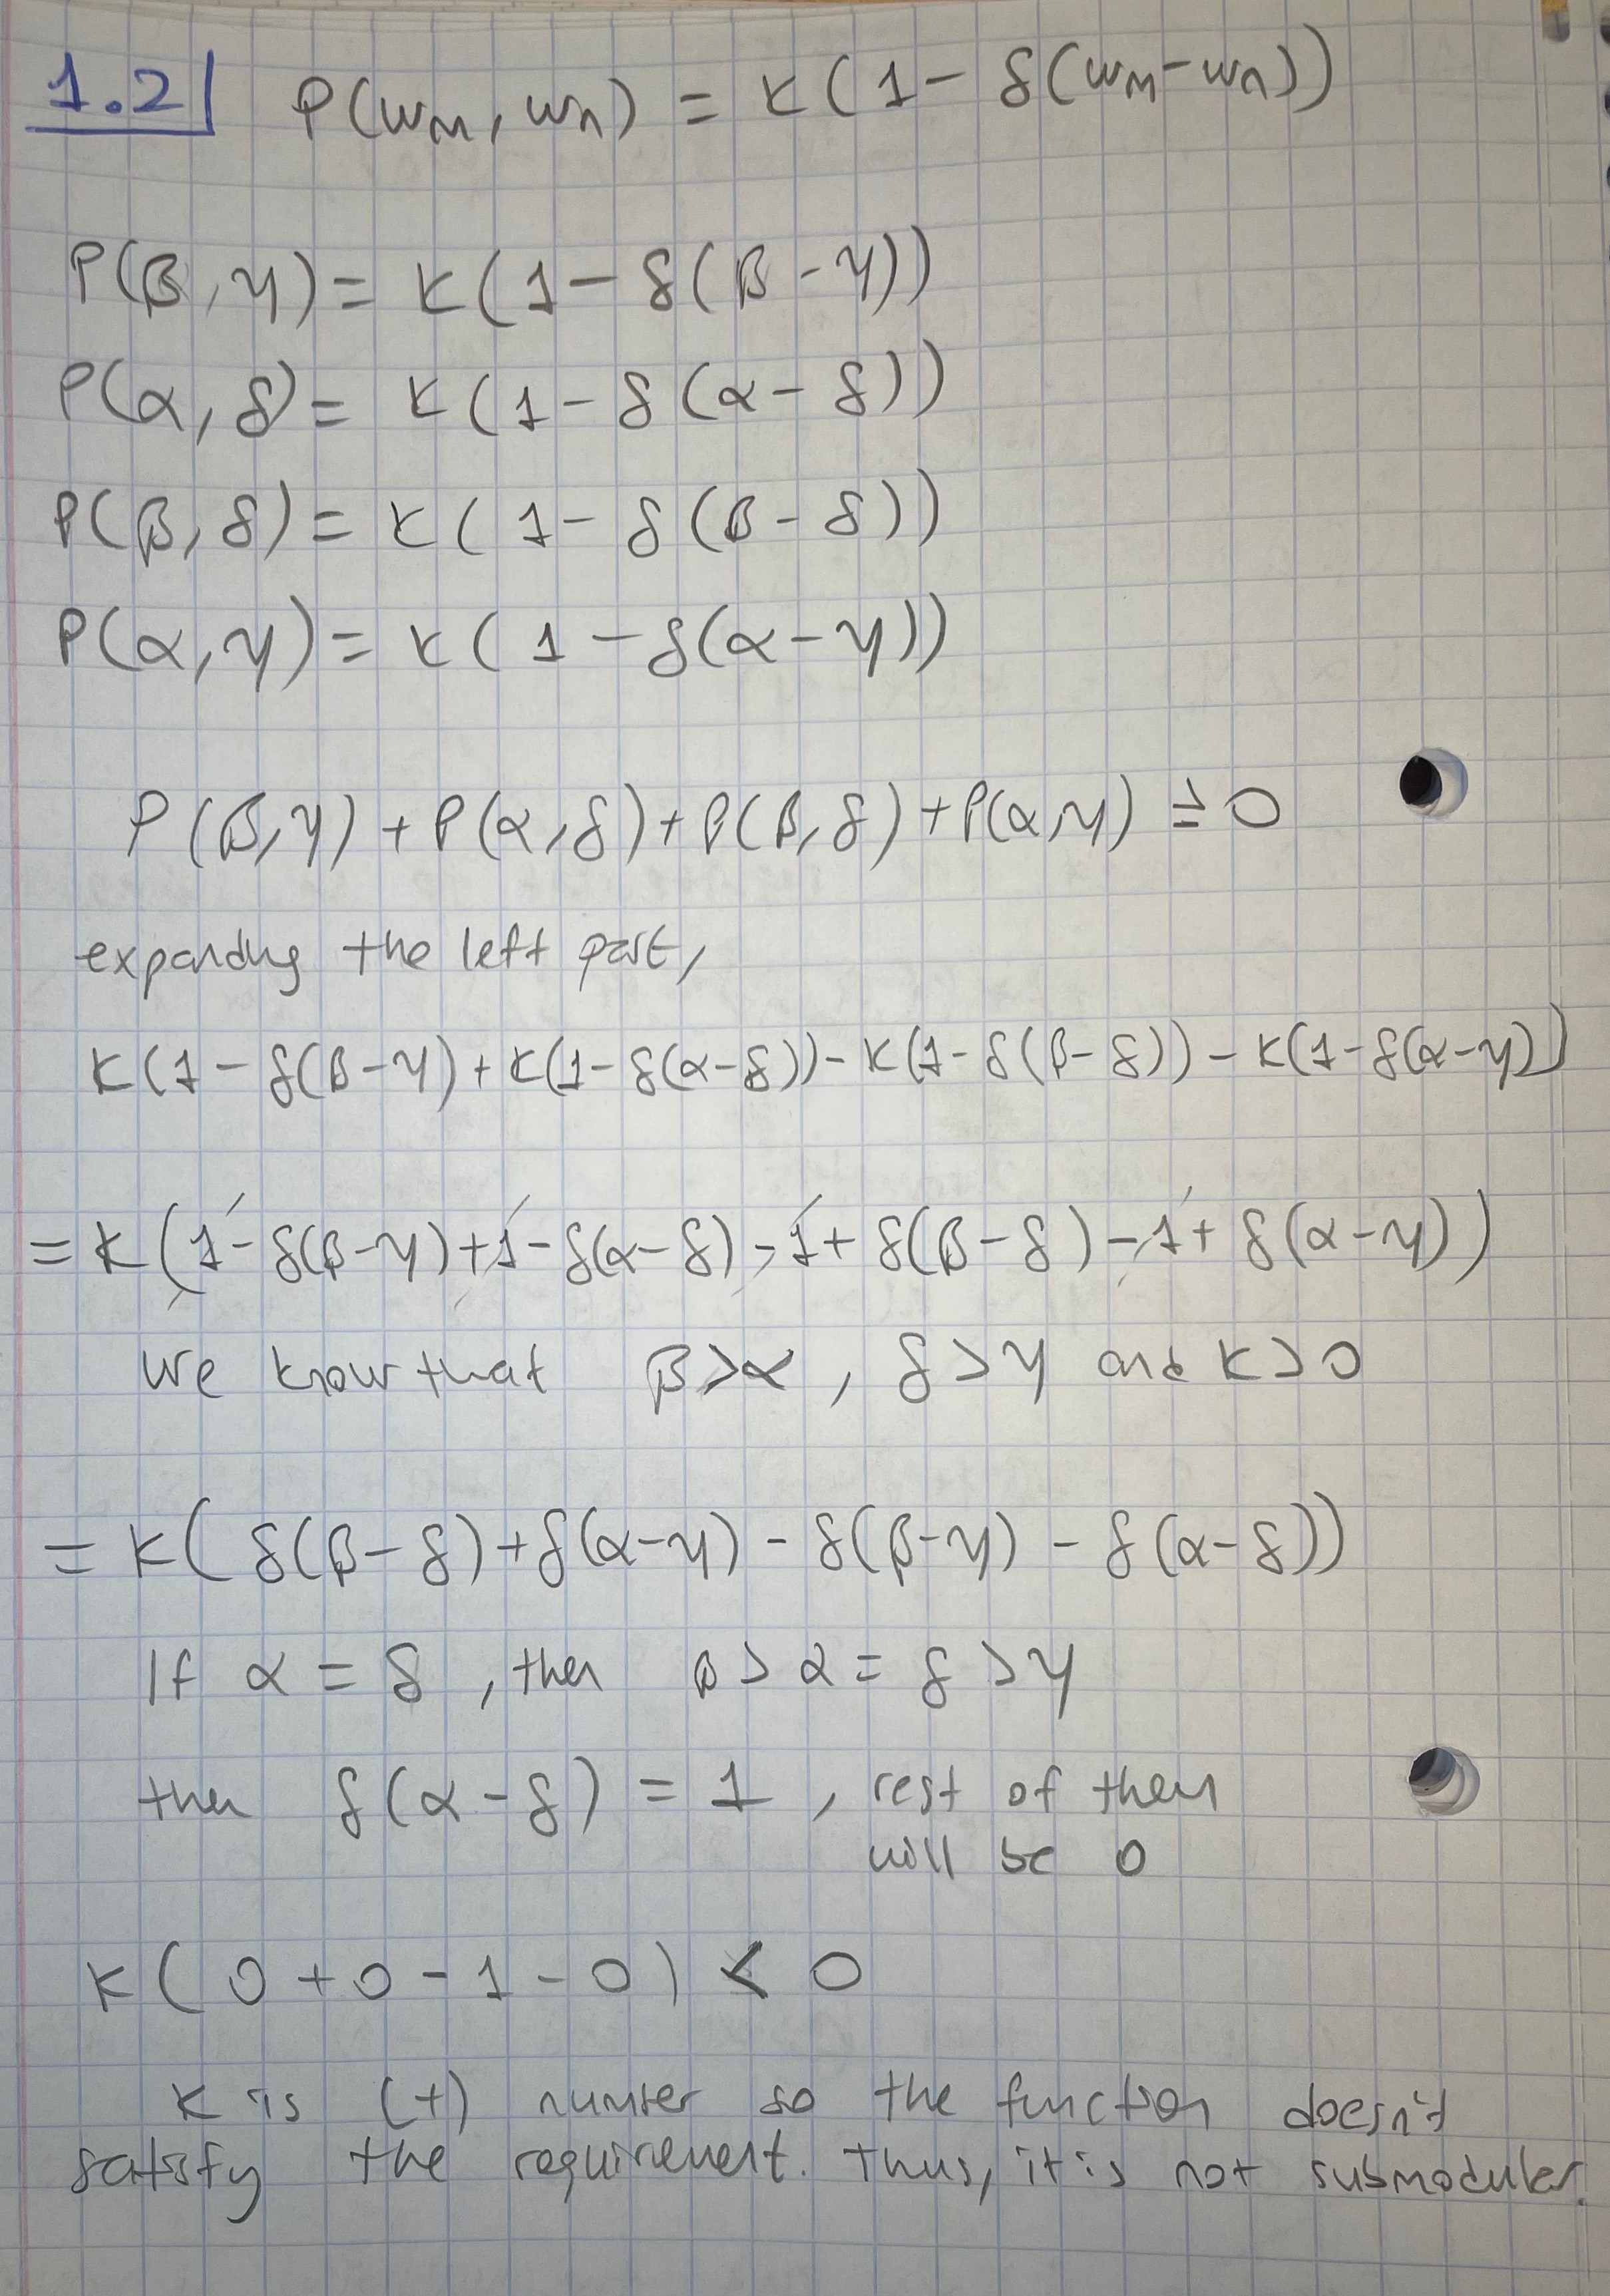 1.2| P(wm, wn) = κ(1 - δ(wm-wn))
P(β, γ) = κ(1 - δ(β-γ))
P(α, δ) = κ(1 - δ(α-δ))
P(β, δ) = κ(1 - δ(β-δ))
P(α, γ) = κ(1 - δ(α-γ))
P(β,γ) + P(α,δ) + P(β,δ) + P(α,γ) ≥ 0
expanding the left part,
κ(1-δ(β-γ) + κ(1-δ(α-δ)) - κ(1-δ(β-δ)) - κ(1-δ(α-γ))
= κ(1-δ(β-γ)+1-δ(α-δ)-1+δ(β-δ)-1+δ(α-γ))
we know that β>α, δ>γ and κ>0
= κ(δ(β-δ)+δ(α-γ)-δ(β-γ)-δ(α-δ))
If α = δ, then β>α=δ>γ
then δ(α-δ) = 1, rest of them
will be 0
κ(0+0-1-0) < 0
κ is (+) number so the function doesn't
satisfy the requirement. Thus, it is not submodular.